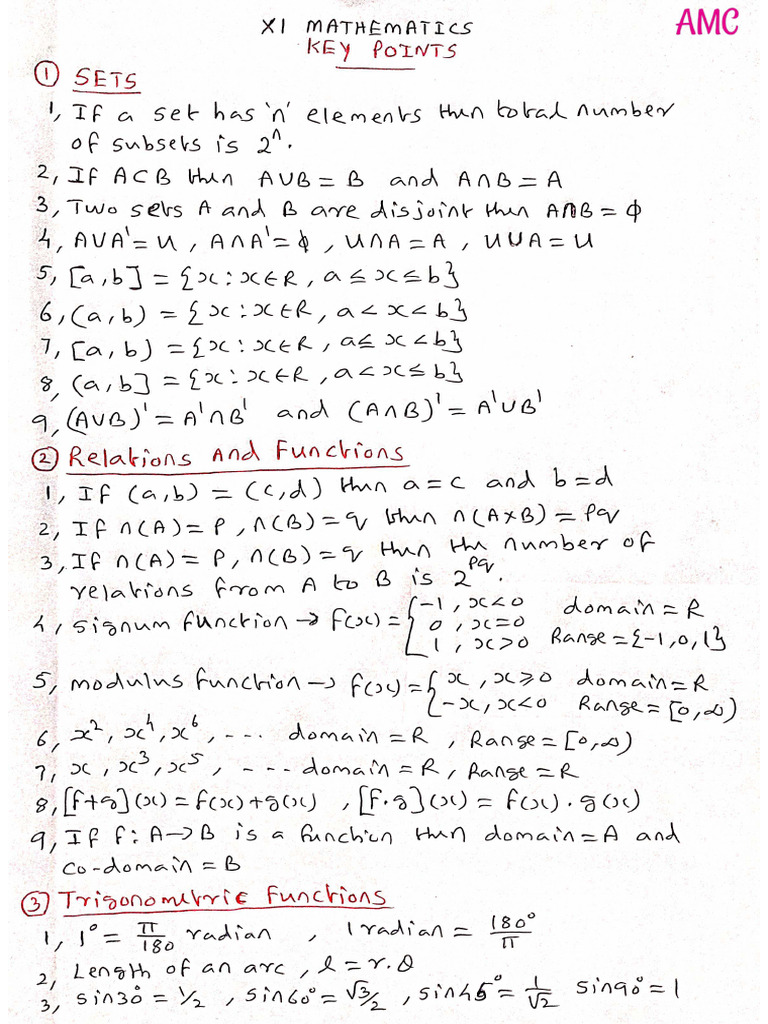 AMC
XI MATHEMATICS
KEY POINTS
① SETS
1, If a set has 'n' elements then total number
of subsets is 2ⁿ.
2, If A⊂B then A∪B = B and A∩B = A
3, Two sets A and B are disjoint then A∩B = ϕ
4, A∪A' = U , A∩A' = ϕ , U∩A = A , U∪A = U
5, [a,b] = {x : x∈R , a ≤ x ≤ b}
6, (a,b) = {x : x∈R , a < x < b}
7, [a,b) = {x : x∈R , a ≤ x < b}
8, (a,b] = {x : x∈R , a < x ≤ b}
9, (A∪B)' = A'∩B' and (A∩B)' = A'∪B'
② Relations And Functions
1, If (a,b) = (c,d) then a = c and b = d
2, If n(A) = P , n(B) = q then n(A×B) = Pq
3, If n(A) = P , n(B) = q then the number of
relations from A to B is 2^Pq.
4, signum function → f(x) = { -1 , x<0 domain = R
0 , x=0
1 , x>0 Range = {-1,0,1}
5, modulus function → f(x) = { x , x ≥ 0 domain = R
-x , x<0 Range = [0,∞)
6, x², x⁴, x⁶, - - - domain = R , Range = [0,∞)
7, x , x³, x⁵, - - - domain = R , Range = R
8, [f+g](x) = f(x)+g(x) , [f·g](x) = f(x)·g(x)
9, If f : A→B is a function then domain = A and
co-domain = B
③ Trigonometric Functions
1, 1° = π/180 radian , 1 radian = 180°/π
2, Length of an arc , l = r.θ
3, sin30° = 1/2 , sin60° = √3/2 , sin45° = 1/√2 sin90° = 1